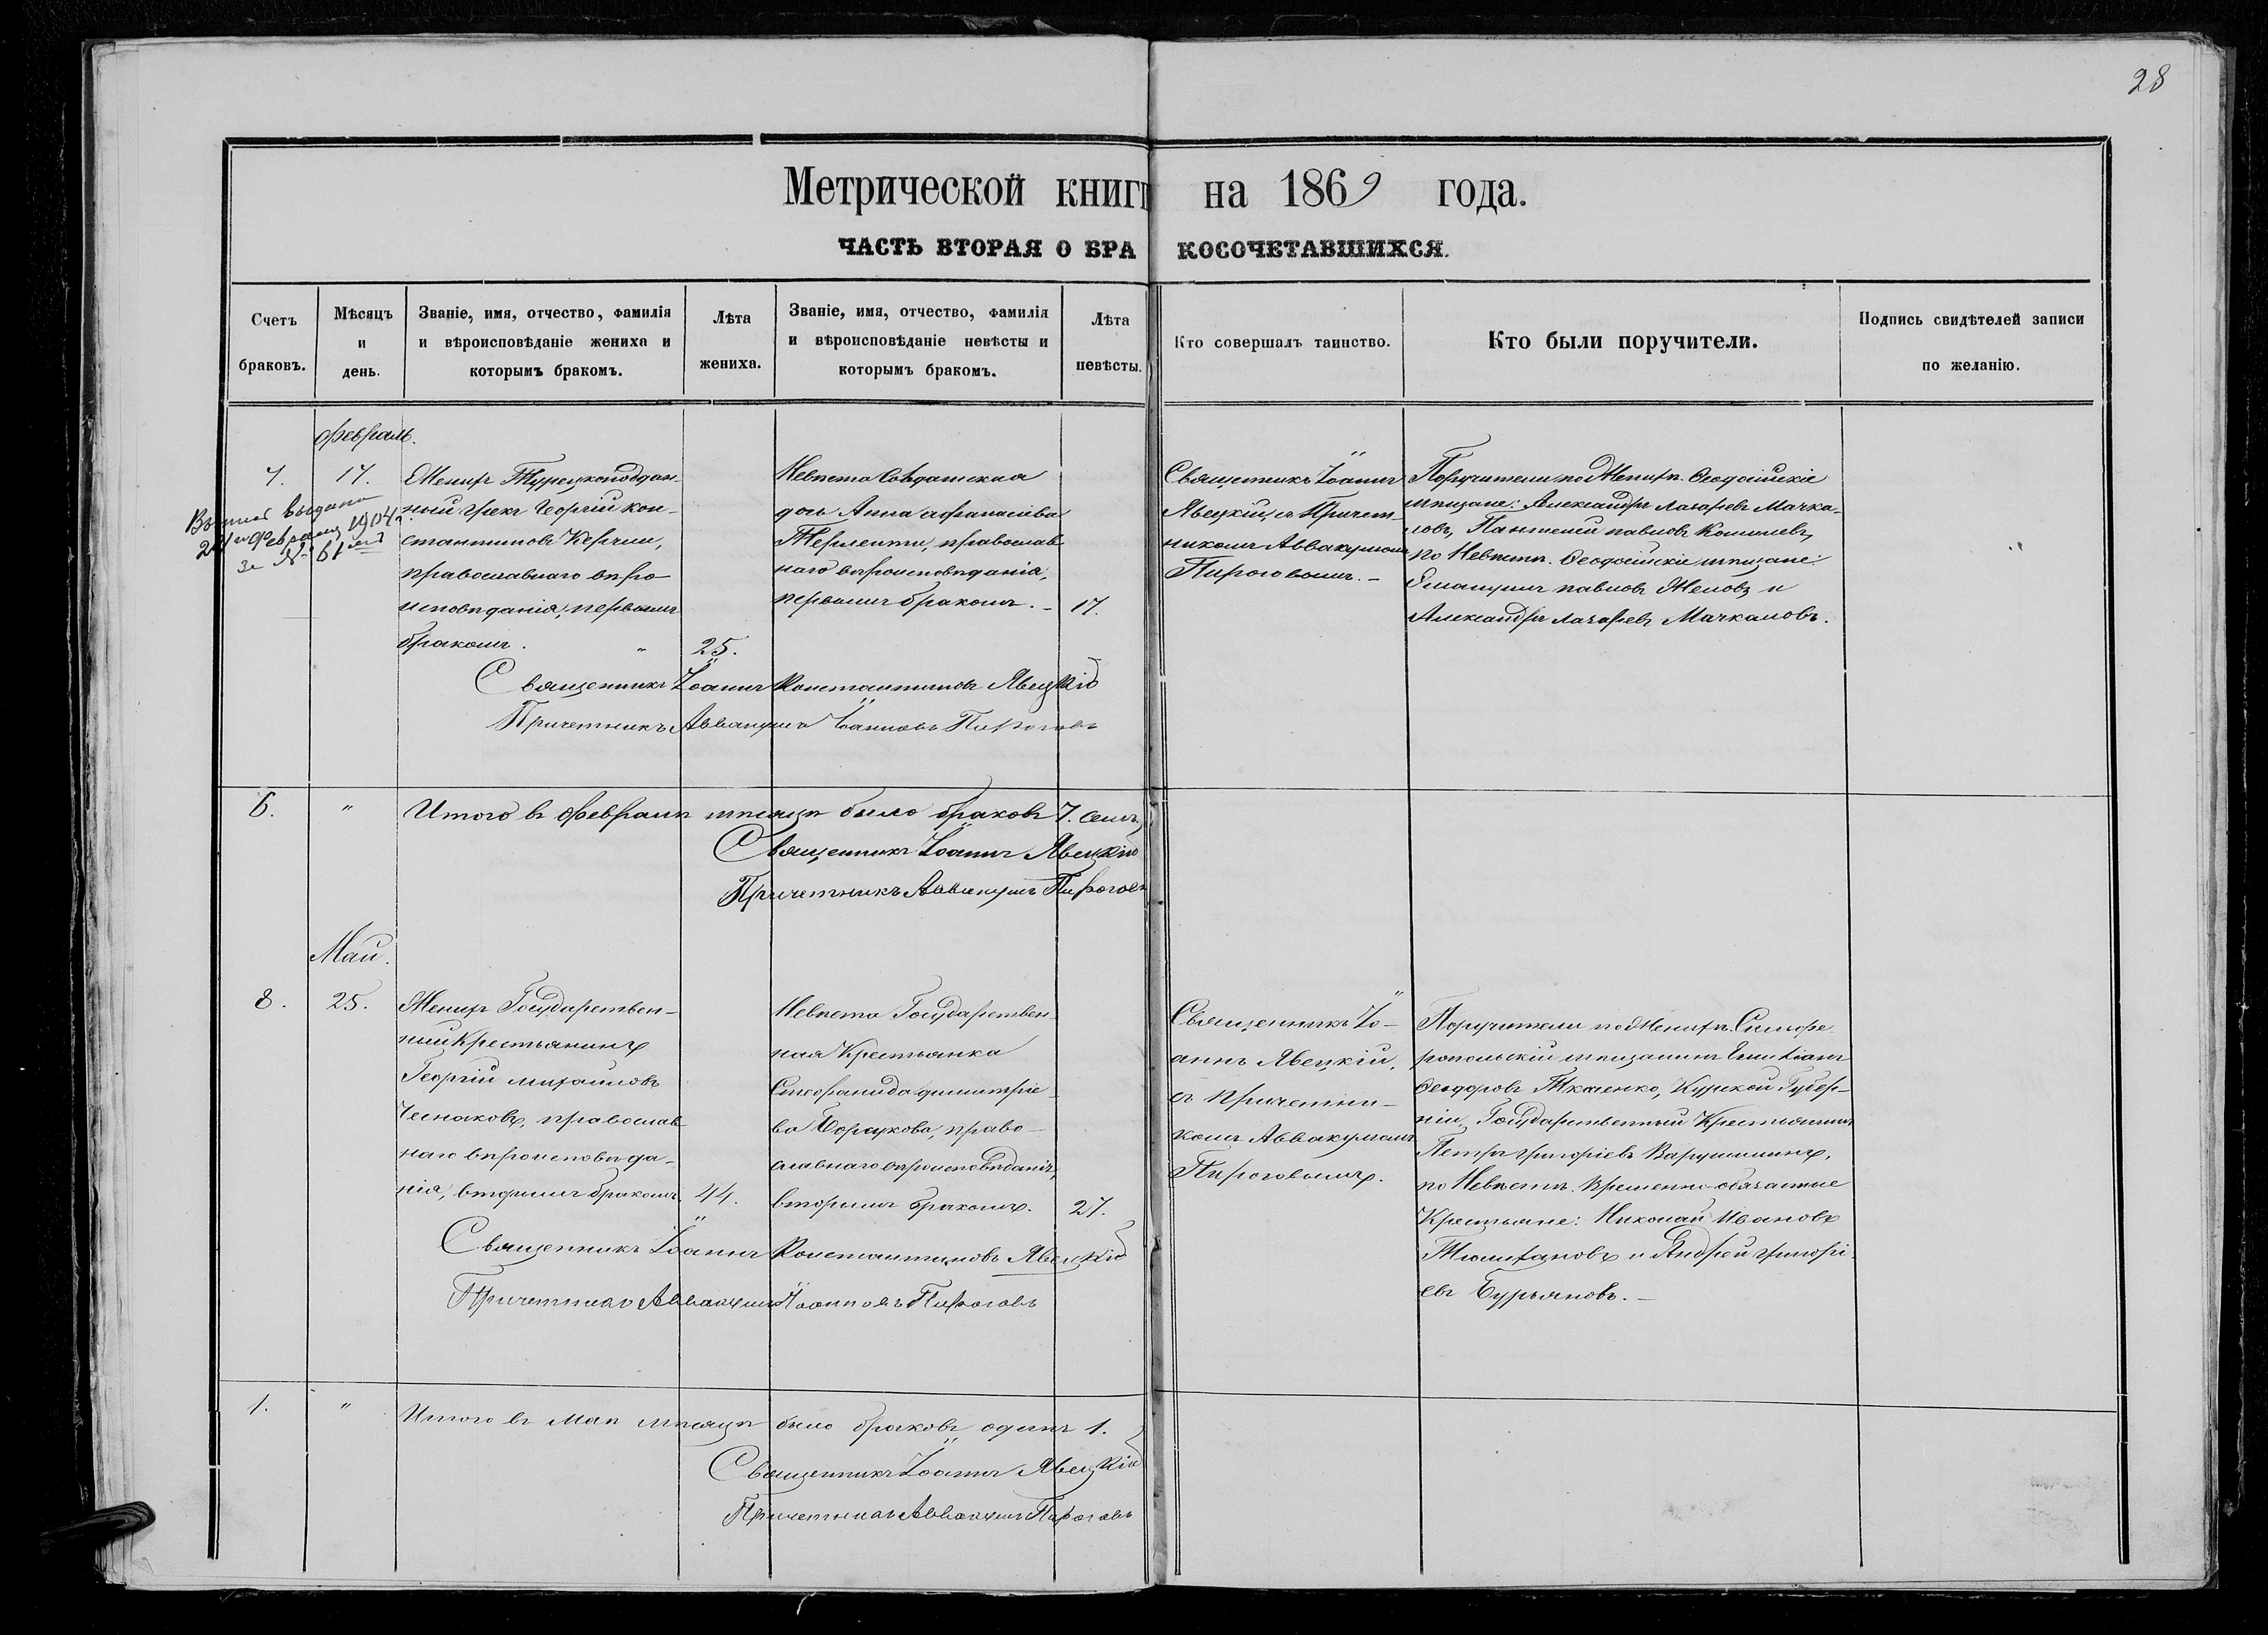 28
Метрической книг на 1869 года.
ЧАСТЬ ВТОРАЯ О БРАКОСОЧЕТАВШИХСЯ.
Счетъ браковъ.
Мѣсяцъ и день.
Званіе, имя, отчество, фамилія
и вѣроисповѣданіе жениха и
которымъ бракомъ.
Лѣта жениха.
Званіе, имя, отчество, фамилія
и вѣроисповѣданіе невѣсты и
которымъ бракомъ.
Лѣта невѣсты.
Кто совершалъ таинство.
Кто были поручители.
Подпись свидѣтелей записи
по желанію.
Февраль.
7.
17.
выдана
24го Февраля 1904 г.
за № 61
Женихъ Турецкоподдан-
ный грекъ Георгій Кон-
стантиновъ
православнаго вѣро
исповѣданія, первымъ
бракомъ. "
25.
Невѣста Солдатская
дочь Анна Афанасіева
православ
наго вѣроисповѣданія,
первымъ бракомъ. –
17.
Священникъ Іоаннъ
Явецкій, съ Причет-
никомъ Аввакумомъ
Пироговымъ. –
Поручители по Женихѣ. Ѳеодосійскіе
мѣщане: Александръ Лазаревъ Мачка-
ловъ, Пантелей Павловъ
по Невѣстѣ. Ѳеодосійскіе мѣщане:
Павловъ и
Александръ Лазаревъ Мачкаловъ.
Священникъ Іоаннъ Константиновъ Явецкій
Причетникъ Аввакумъ Іоанновъ Пироговъ
6.
"
Итого въ Февралѣ мѣсяцѣ было браковъ 7. семь,
Священникъ Іоаннъ Явецкій
Причетникъ Аввакумъ Пироговъ
Май.
8.
25.
Женихъ Государствен-
ный Крестьянинъ
Георгій Михайловъ
Чесноковъ, православ
наго вѣроисповѣда-
нія, вторымъ бракомъ
44.
Невѣста Государствен
ная Крестьянка
Стефанида Димитріе-
ва право-
славнаго вѣроисповѣданія,
вторымъ бракомъ.
27.
Священникъ Іо-
аннъ Явецкій,
съ Причетни-
комъ Аввакумомъ
Пироговымъ.
Поручители по Женихѣ. Симфе
ропольскій мѣщанинъ Емиліанъ
Ѳеодоровъ Ткаченко, Курской Губер-
ніи, Государственный Крестьянинъ
Петръ Григоріевъ
по Невѣстѣ. Временно-обязанные
Крестьяне: Николай Ивановъ
и Андрей Григорі-
евъ Бурьяновъ. –
Священникъ Іоаннъ Константиновъ Явецкій
Причетникъ Аввакумъ Іоанновъ Пироговъ
1.
"
Итого въ Маѣ мѣсяцѣ было браковъ одинъ 1.
Священникъ Іоаннъ Явецкій
Причетникъ Аввакумъ Пироговъ